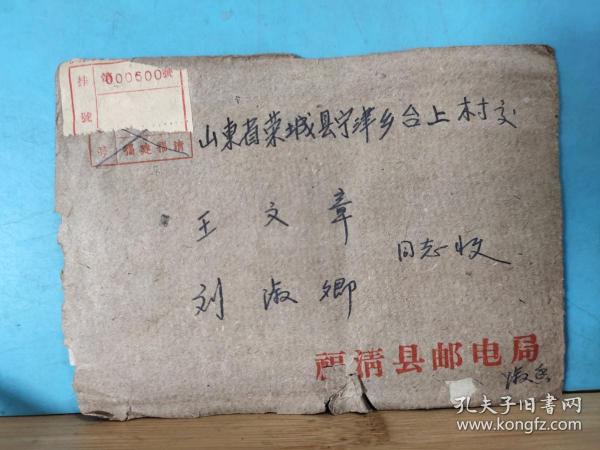 掛號
第000500號
山東省荣城县宁津乡台上村交
王文章
刘淑卿
同志收
福清县邮电局
孔夫子旧书网
www.kongfz.com